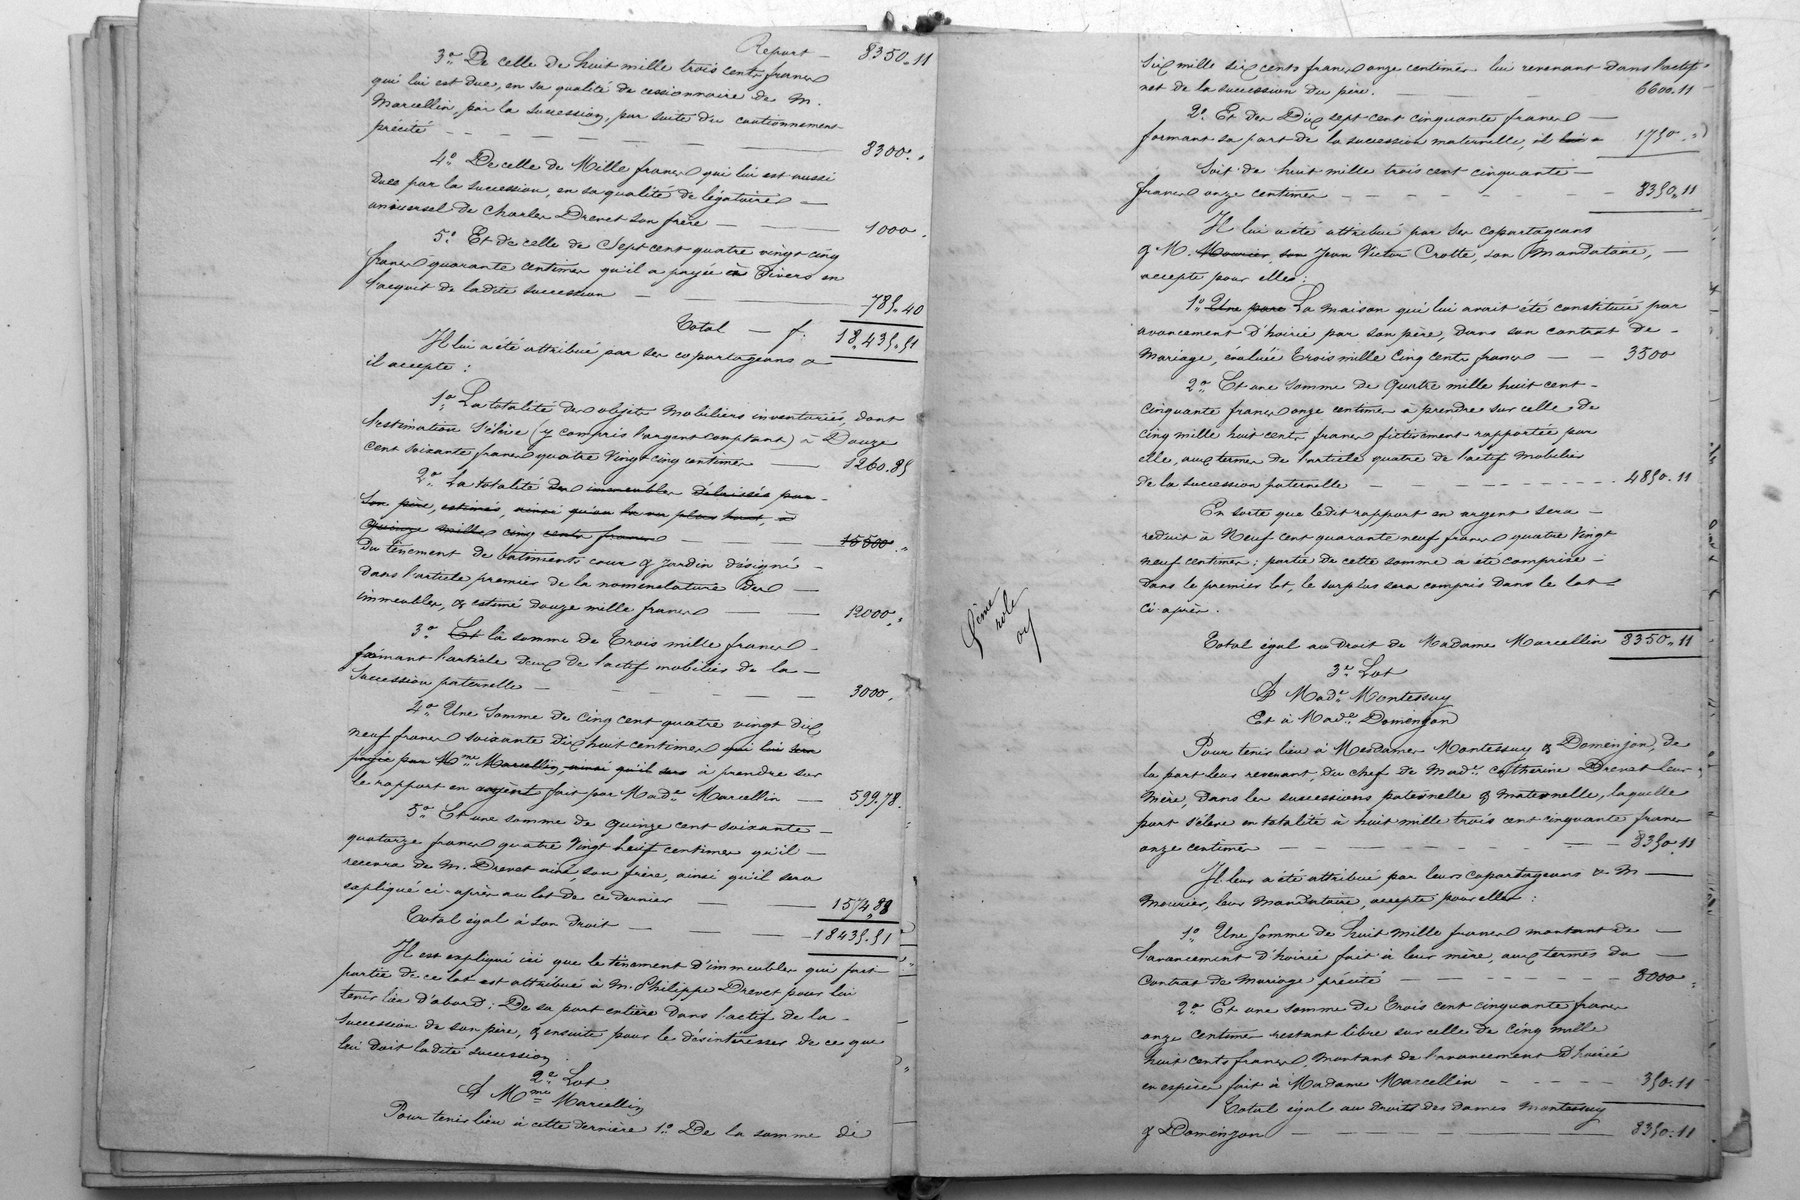 Report — 8350.11
3º De celle de huit mille trois cents francs
qui lui est due, en sa qualité de cessionnaire de M.
Marcellin, par la succession, par suite du cautionnement
précité — 8300.
4º De celle de Mille francs qui lui est aussi
dues par la succession, en sa qualité de légataire
universel de Charles Drevet son frère — 1000.
5º Et de celle de Sept cent quatre vingt cinq
francs quarante centimes qu'il a payée à Divers en
l'acquit de ladite succession — 785.40
Total — f. 18,435.51
Il lui a été attribué par ses copartageans &
il accepte :
1º La totalité des objets mobiliers inventoriés, dont
l'estimation s'élève (y compris l'argent comptant) à Douze
cent soixante francs quatre vingt cinq centimes — 1260.85
2º La totalité des immeubles délaissés par
son père, estimés, ainsi qu'on l'a vu plus haut, à
Quinze mille cinq cents francs — 15500.
Du tènement de bâtiments cour & jardin désigné
dans l'article premier de la nomenclature des
immeubles, & estimé douze mille francs — 12000.
3º Et la somme de Trois mille francs
formant l'article deux de l'actif mobilier de la
succession paternelle — 3000.
4º Une somme de cinq cent quatre vingt dix
neuf francs soixante dix huit centimes qui lui sera
payée par Mme Marcellin, ainsi qu'il sera à prendre sur
le rapport en argent fait par Made Marcellin — 599.78.
5º Et une somme de quinze cent soixante
quatorze francs quatre vingt huit centimes qu'il
recevra de M. Drevet ainé, son frère, ainsi qu'il sera
expliqué ci-après au lot de ce dernier — 1574.88
Total égal à son droit — 18435.51
Il est expliqué ici que le tènement d'immeubles qui fait
partie de ce lot est attribué à M. Philippe Drevet pour lui
tenir lieu d'abord : De sa part entière dans l'actif de la
succession de son père, & ensuite pour le désintéresser de ce que
lui doit ladite succession.
2e Lot
A Mme Marcellin
Pour tenir lieu à cette dernière 1º De la somme de
8ème
rôle
six mille six cents francs onze centimes lui revenant dans l'actif
net de la succession du père. — 6600.11
2º Et des Dix sept cent cinquante francs
formant sa part de la succession maternelle, il lui a 1750.
Soit de huit mille trois cent cinquante
francs onze centimes — 8350.11
Il lui a été attribué par ses copartageans
& M. Mourier, son Jean Victor Crotte, son Mandataire,
accepte pour elles :
1º Une part La maison qui lui avait été constituée par
avancement d'hoirie par son père, dans son contrat de
Mariage, évaluée Trois mille cinq cents francs — 3500
2º Et une somme de Quatre mille huit cent
cinquante francs onze centimes à prendre sur celle de
cinq mille huit cents francs fictivement rapportée par
elle, aux termes de l'article quatre de l'actif mobilier
de la succession paternelle — 4850.11
En sorte que ledit rapport en argent sera
réduit à Neuf cent quarante neuf francs quatre vingt
neuf centimes ; partie de cette somme a été comprise
dans le premier lot, le surplus sera compris dans le lot
ci-après.
Total égal au droit de Madame Marcellin 8350.11
3e Lot
A Made Montessuy
Et à Made Dominjon
Pour tenir lieu à Mesdames Montessuy & Dominjon, de
la part leur revenant, du chef de Made Catherine Drevet leur
mère, dans les successions paternelle & maternelle, laquelle
part s'élève en totalité à huit mille trois cent cinquante francs
onze centimes — 8350.11
Il leur a été attribué par leurs copartageans & M
Mourier, leur Mandataire, accepte pour elles :
1º Une somme de huit mille francs montant de
l'avancement d'hoirie fait à leur mère, aux termes du
contrat de Mariage précité — 8000
2º Et une somme de Trois cent cinquante francs
onze centimes restant libre sur celle de cinq mille
huit cents francs, montant de l'avancement d'hoirie
en espèces fait à Madame Marcellin — 350.11
Total égal au droits des dames Montessuy
& Dominjon — 8350.11